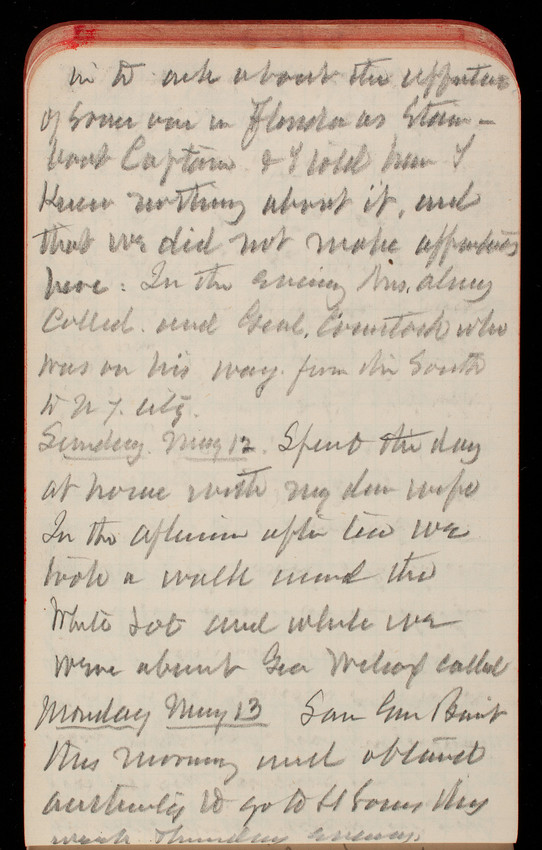 in to ask about the appointm
of some one in Florida as Steam-
boat Captain & I told him I
knew nothing about it, and
that we did not make appointmts
here. In the evening Mrs. Almy
called. and Genl. Comstock who
was on his way from the South
to N.Y. city.
Sunday May 12. Spent the day
at home with my dear wife
In the afternoon after tea we
took a walk round the
White Lot and while we
were absent Geo Wilcox called
Monday May 13 Saw
this morning and obtained
authority to go to St Louis this
week Thursday evening.